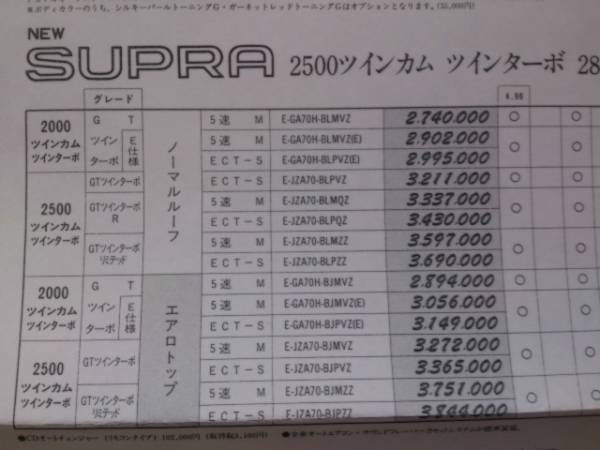 ※ボディカラーのうち、シルキーパールトーニングG・ガーネットレッドトーニングGはオプションとなります。(35,000円)
NEW
SUPRA 2500ツインカム ツインターボ 28
グレード
2000 ツインカム ツインターボ GT ツインターボ E仕様
2500 ツインカム ツインターボ GTツインターボ
GTツインターボ R
GTツインターボ リミテッド
ノーマルルーフ
5速 M E-GA70H-BLMVZ 2.740.000 ○ ○
5速 M E-GA70H-BLMVZ(E) 2.902.000 ○ ○
ECT-S E-GA70H-BLPVZ(E) 2.995.000
ECT-S E-JZA70-BLPVZ 3.211.000 ○ ○
5速 M E-JZA70-BLMQZ 3.337.000 ○ ○
ECT-S E-JZA70-BLPQZ 3.430.000
5速 M E-JZA70-BLMZZ 3.597.000 ○ ○
ECT-S E-JZA70-BLPZZ 3.690.000
2000 ツインカム ツインターボ GT ツインターボ E仕様
2500 ツインカム ツインターボ GTツインターボ
GTツインターボ リミテッド
エアロトップ
5速 M E-GA70H-BJMVZ 2.894.000 ○ ○
5速 M E-GA70H-BJMVZ(E) 3.056.000 ○ ○
ECT-S E-GA70H-BJPVZ(E) 3.149.000
5速 M E-JZA70-BJMVZ 3.272.000 ○ ○
ECT-S E-JZA70-BJPVZ 3.365.000
5速 M E-JZA70-BJMZZ 3.751.000 ○ ○
ECT-S E-JZA70-BJPZZ 3.844.000
●CDオートチェンジャー(リモコンタイプ)